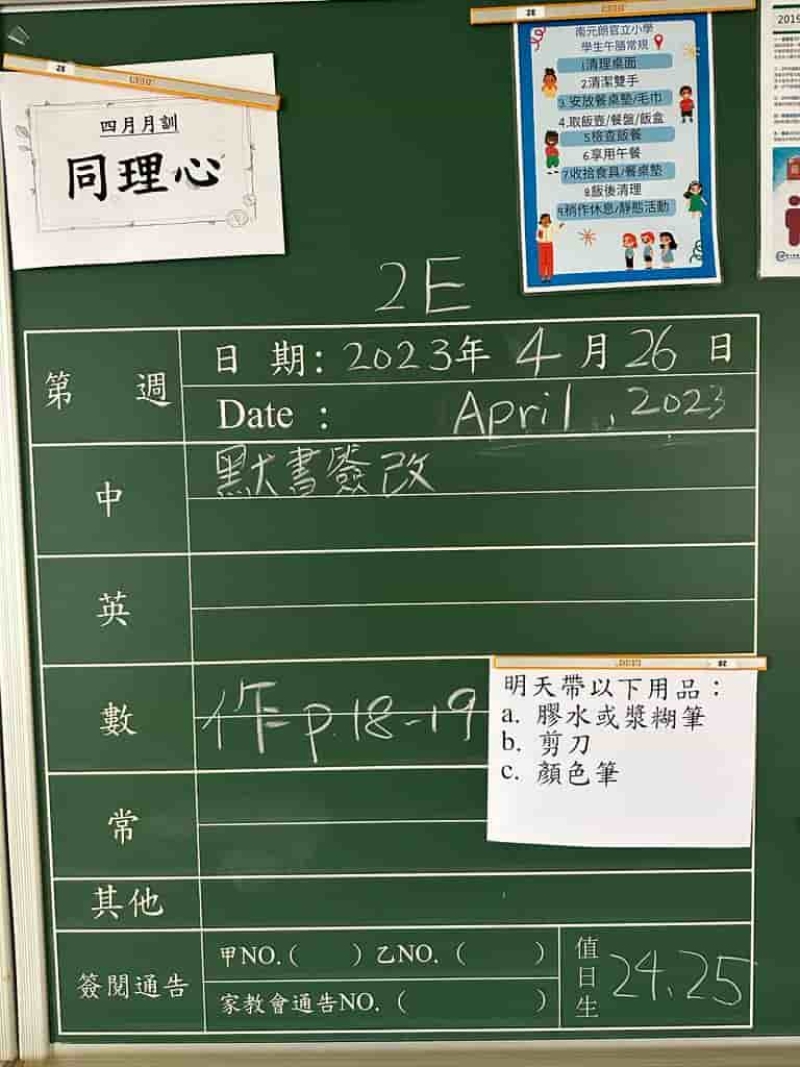 四月月訓
同理心
南元朗官立小學
學生午膳常規
1.清理桌面
2.清潔雙手
3.安放餐桌墊/毛巾
4.取飯壺/餐盤/飯盒
5.檢查飯餐
6.享用午餐
7.收拾食具/餐桌墊
8.飯後清理
9.稍作休息/靜態活動
2019
2E
第 週
日 期: 2023年 4 月 26 日
Date : April , 2023
中
默書簽改
英
數
作= p.18-19
明天帶以下用品：
a. 膠水或漿糊筆
b. 剪刀
c. 顏色筆
常
其他
簽閱通告
甲NO.( ) 乙NO. ( )
家教會通告NO. ( )
值日生
24.25